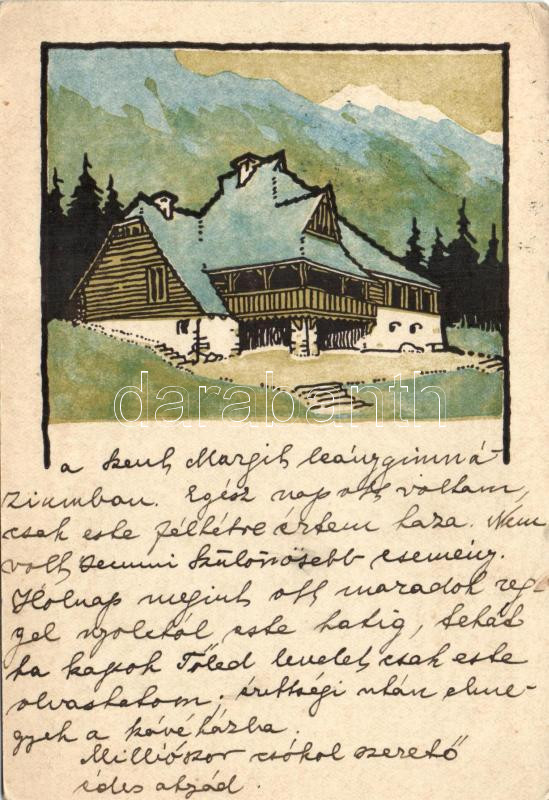 darabanth
a Szent Margit leánygimná-
ziumban. Egész nap ott voltam,
csak este féthétre értem haza. Nem
volt semmi különösebb esemény.
Holnap megint ott maradok reg-
gel nyolctól este hatig, tehát
ha kapok Tőled levelet, csak este
olvashatom; érettségi után elme-
gyek a kávéházba.
Milliószor csókol szerető
édes apád.